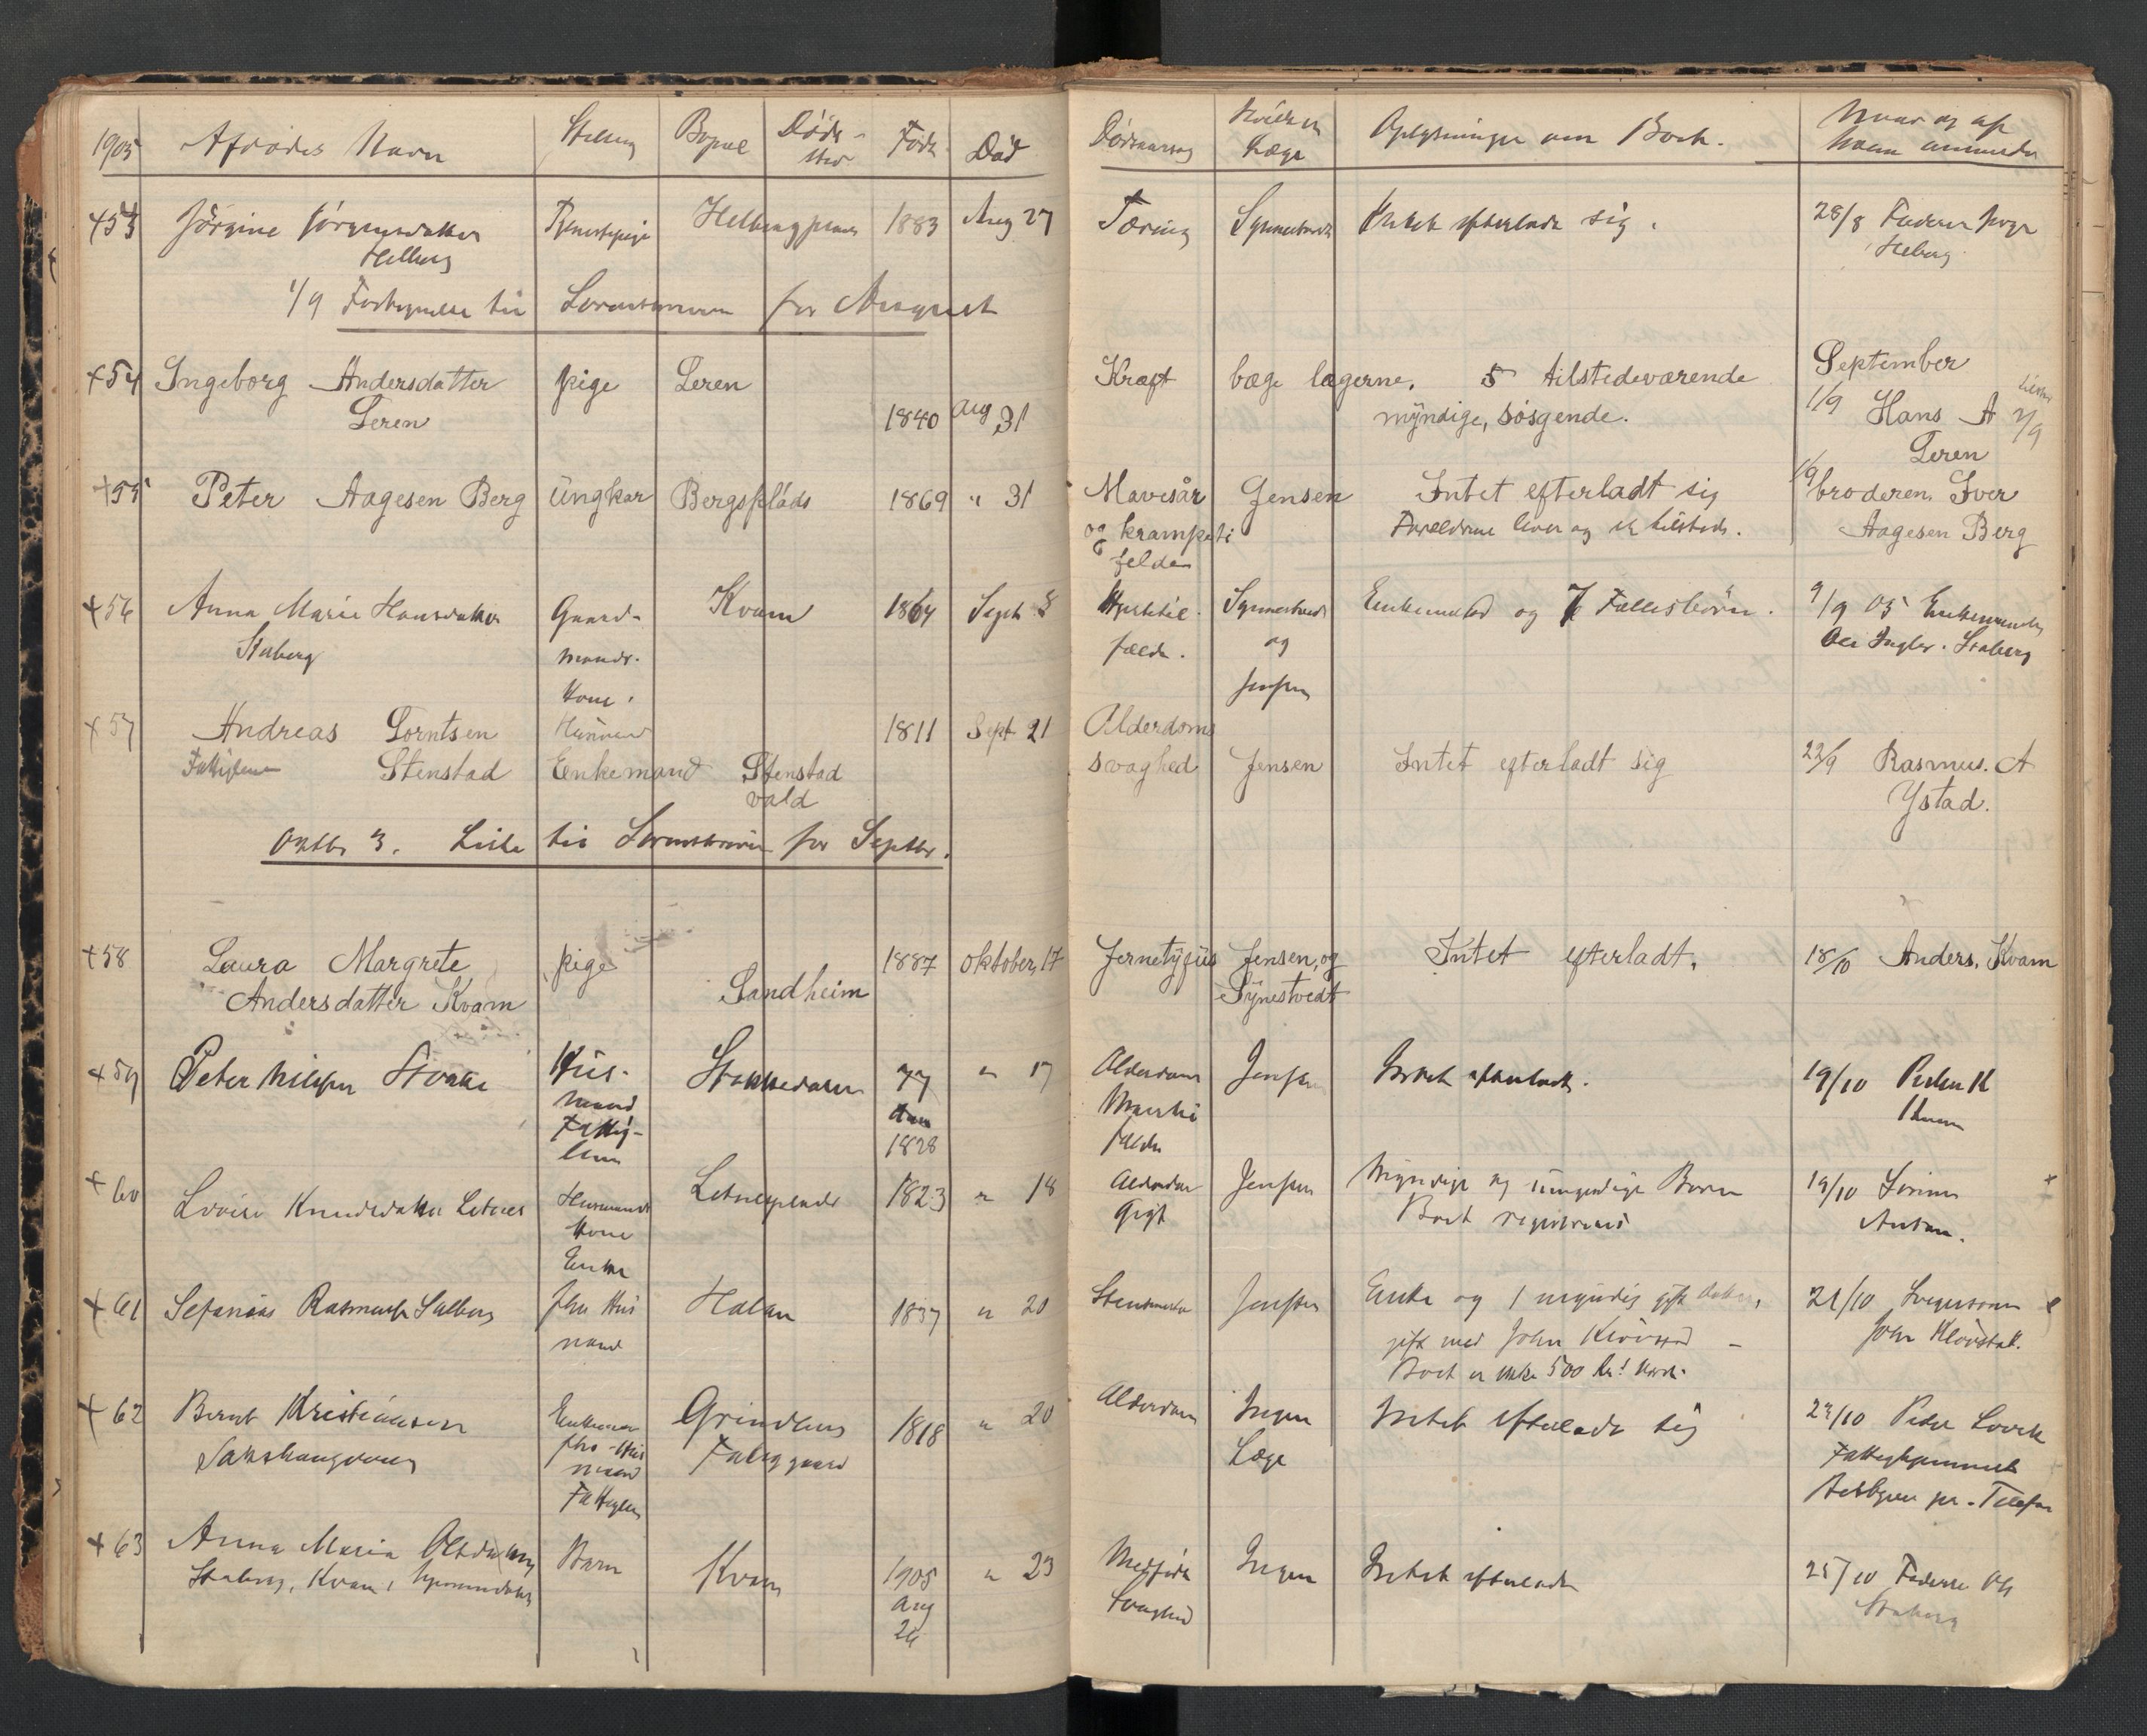 1905 Afdødes Navn Stilling Bopæl Døds- Født Død
sted
Dødsaarsag Hvilken Oplysninger om Boet. Hvor og af
Læge hvem anmeldt
+53 Jørgine Jørgensdatter Tjenestepige Helbergplads 1883 Aug 27 Tæring Synnestvedt Intet efterladt sig. 28/8 Faderen
Helberg
1/9 Fortegnelse til Sorenskriveren for August
+54 Ingeborg Andersdatter pige Leren Kræft bæge lægerne. 5 tilstedeværende September
Leren 1840 Aug 31 myndige, søsgende. 1/9 Hans A
Leren
+55 Peter Aagesen Berg Ungkar Bergsplads 1869 " 31 Mavesår Jensen Intet efterladt sig 1/9 broderen. Iver
og krampeti Forældrene lever og er tilstede. Aagesen Berg
felde
+56 Anna Marie Hansdatter Gaard- Kvam 1864 Sept 8 Synnestvedt Enkemand og 7 Fællesbørn. 9/9 05 Enkemanden
Staberg mands- fælde. og Ole Staberg
Kone. Jensen
+57 Andreas Lorntsen Husmand 1811 Sept 21 Alderdoms
Fattiglem Stenstad Enkemand Stenstad svaghed Jensen Intet efterladt sig 22/9 Rasmus. A
vald Ystad.
Oktbr 3. Liste til Sorenskriveren for Septbr.
+58 Laura Margrete pige 1887 Oktober, 17 Jernetyfus Jensen, og Intet efterladt. 18/10 Anders. Kvam
Andersdatter Kvam Sandheim Synestvedt
+59 Peter Nilssen Stokke Hus- Stokkedalen 77 " 17 Alderdom Jenssen Intet efterladt. 19/10 Peder K
mand Aar Kvam
Fattig- 1828
lem
+60 Lovise Knudsdatter Letnes Husmands Letnesplads 1823 " 18 Alderdom Jenssen Myndige og umyndige Børn 19/10
Kone Gigt Boet registreres Anton.
Enke
+61 Sefanias Rasmussen Salberg fhv Hus Halan 1837 " 20 Jenssen Enke og 1 myndig gift datter, 21/10 Svigersønn
mand gift med John Kløvstad - John Kløvstad.
Boet er ikke 500 Kr. værd.
+62 Bernt Kristiansen Enkemand Grindberg 1818 " 20 Alderdom Ingen Intet efterladt sig 22/10 Peder
Sakshaug fhv. Hus Fattiggaard Læge Fattighjemmet
mand pr. Telefon
Fattiglem
+63 Anna Maria Olsdatter Barn Kvam 1905 " 23 Medfødt Ingen Intet efterladt 25/10 Faderen Ole
Staberg, Kvam, Aug Svaghed Staberg
24